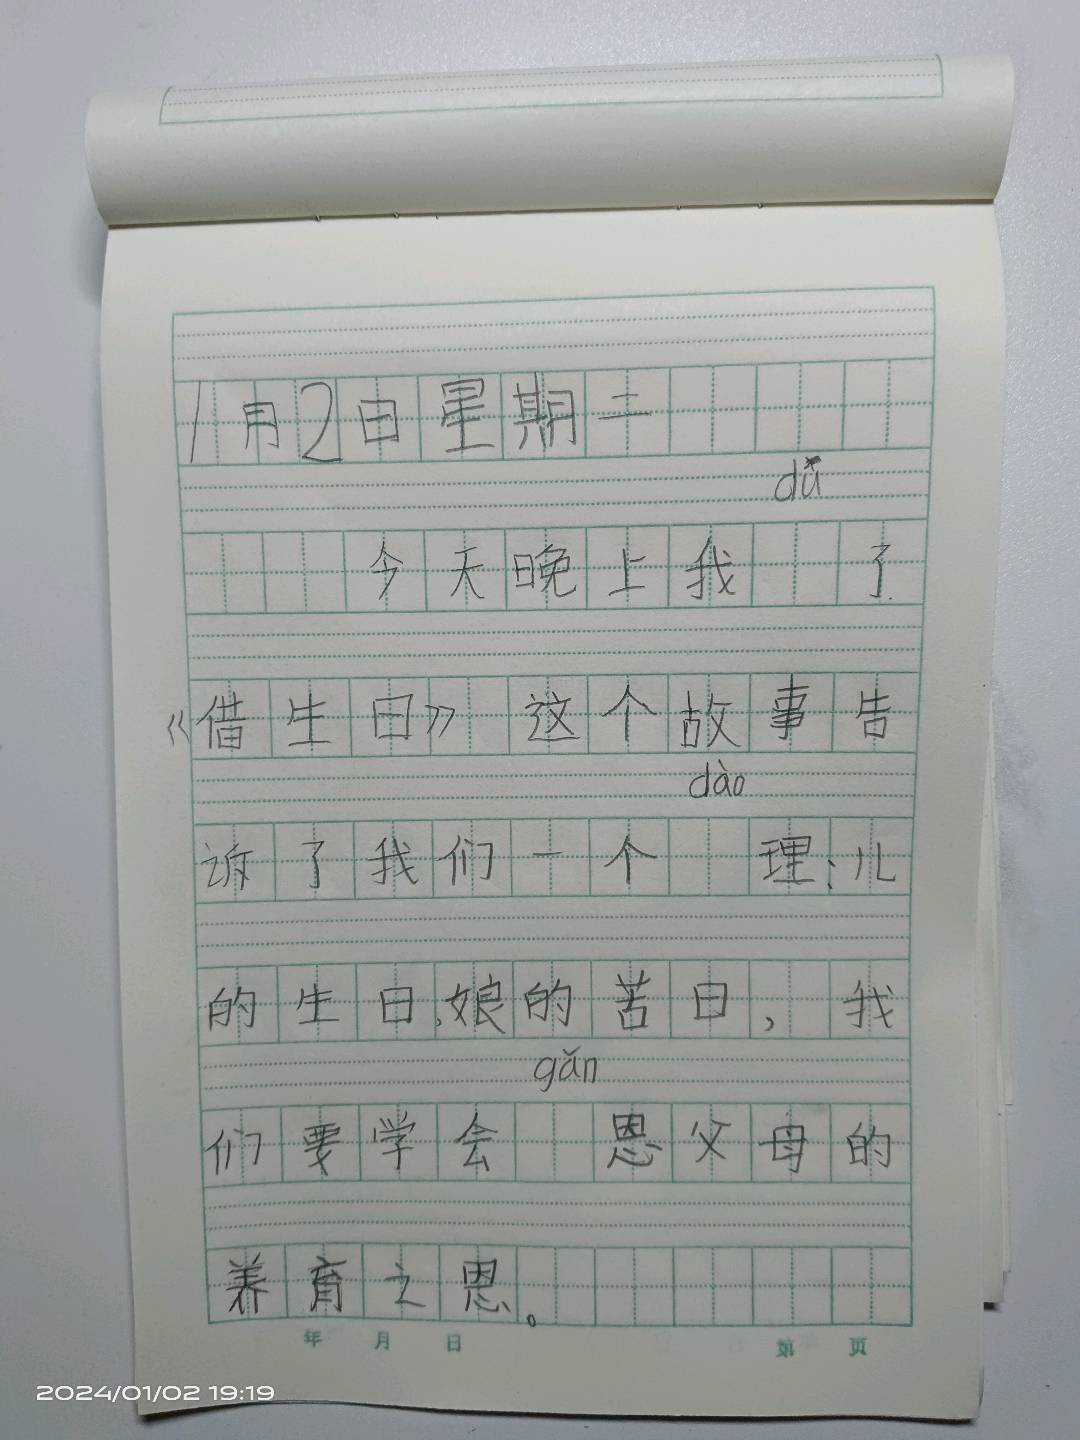 1月2日星期二
dǔ
今天晚上我 了
《借生日》这个故事告
dào
诉了我们一个 理:儿
的生日,娘的苦日,我
gǎn
们要学会 恩父母的
养育之恩。
年 月 日 第 页
2024/01/02 19:19